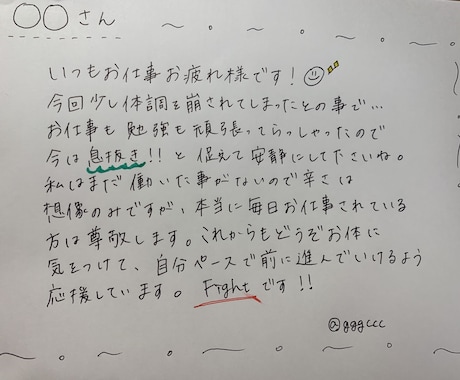 〇〇さん
いつもお仕事お疲れ様です!
今回少し体調を崩されてしまったとの事で…
お仕事も勉強も頑張ってらっしゃったので
今は息抜き!!と捉えて安静にしてくださいね。
私はまだ働いた事がないので辛さは
想像のみですが、本当に毎日お仕事されている
方は尊敬します。これからもどうぞお体に
気をつけて、自分ペースで前に進んでいけるよう
応援しています。Fightです!!
@gggccc